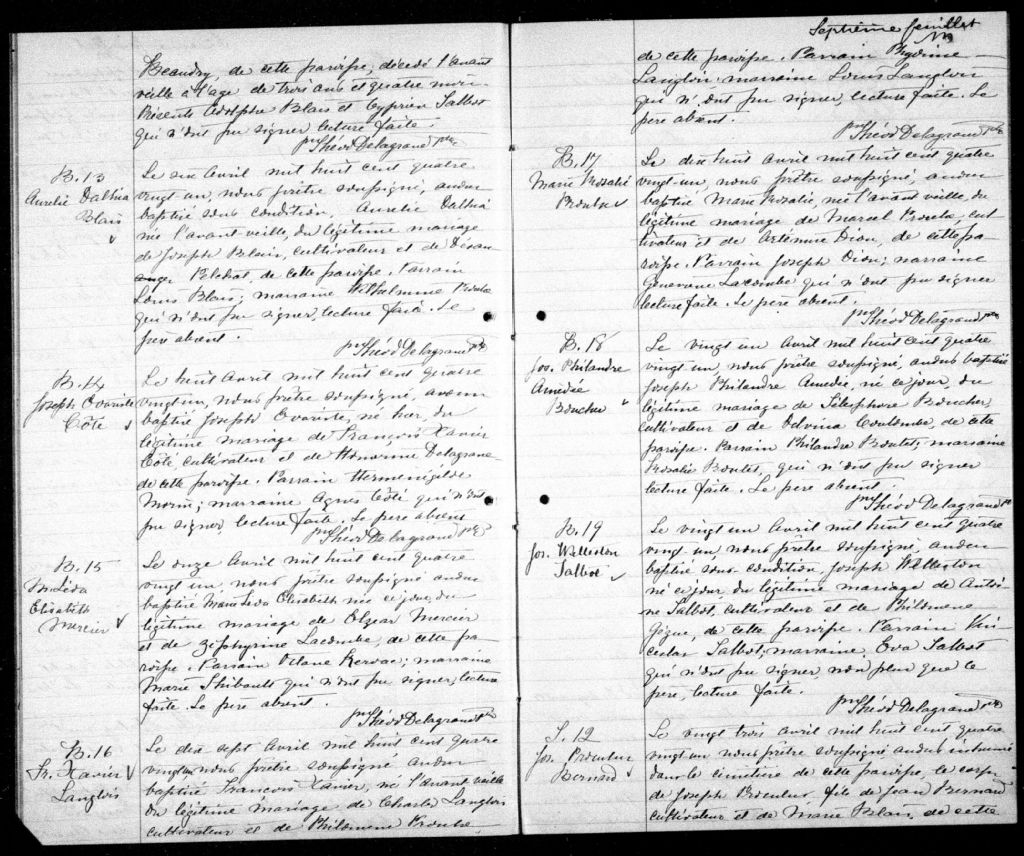 Beaudry, de cette paroisse, décédé l'avant
veille à l'age de trois ans et quatre mois.
Présents Adolphe Blais et Cyprien Talbot
qui n'ont pu signer, lecture faite.
Théod Delagrave ptre
B. 13
Aurelie Dalhia
Blais
Le six Avril mil huit cent quatre
vingt un, nous prêtre soussigné, avons
baptisé sous condition, Aurelie Dalhia
née l'avant veille, du légitime mariage
de Joseph Blais, cultivateur et de Desan
ges, de cette paroisse. Parrain
Louis Blais; marraine Wilhelmine Proulx
qui n'ont pu signer, lecture faite. Le
père absent.
Théod Delagrave ptre
B. 14
Joseph Evariste
Côté
Le huit Avril mil huit cent quatre
vingt un, nous prêtre soussigné, avons
baptisé Joseph Evariste, né hier, du
légitime mariage de François Xavier
Côté cultivateur et de Honorine Delagrave
de cette paroisse. Parrain Hermenégilde
Morin; marraine Agnès Côté qui n'ont
pu signer, lecture faite. Le père absent
Théod Delagrave ptre
B. 15
M. Léda
Elisabeth
Mercier
Le onze Avril mil huit cent quatre
vingt un, nous prêtre soussigné avons
baptisé Marie Léda Elisabeth née ce jour, du
légitime mariage de Elzear Mercier
et de Zéphyrine Lacombe, de cette pa
roisse. Parrain Octave Kerouac; marraine
Marie Thibault qui n'ont pu signer, lecture
faite. Le père absent.
Théod Delagrave ptre
B. 16
Fr. Xavier
Langlois
Le dix sept Avril mil huit cent quatre
vingt un nous prêtre soussigné avons
baptisé François Xavier, né l'avant veille
du légitime mariage de Charles Langlois
cultivateur et de Philomène Proulx
Septième feuillet
de cette paroisse. Parrain
Langlois marraine Louise Langlois
qui n'ont pu signer, lecture faite. Le
père absent.
Théod Delagrave ptre
B. 17
Marie Rosalie
Proulx
Le dix huit Avril mil huit cent quatre
vingt un, nous prêtre soussigné, avons
baptisé Marie Rosalie, née l'avant veille, du
légitime mariage de Marcel Proulx, cul
tivateur et de Artémise Dion, de cette pa
roisse. Parrain Joseph Dion; marraine
Geneviève Lacombe qui n'ont pu signer
lecture faite. Le père absent.
Théod Delagrave ptre
B. 18
Jos. Philandre
Amédée
Boucher
Le vingt un Avril mil huit cent quatre
vingt un, nous prêtre soussigné, avons baptisé
Joseph Philandre Amédée, né ce jour, du
légitime mariage de Télesphore Boucher,
cultivateur et de Delvina Coulombe, de cette
paroisse. Parrain Philandre Boutet; marraine
Rosalie Boutet, qui n'ont pu signer
lecture faite. Le père absent.
Théod Delagrave ptre
B. 19
Jos. Welleston
Talbot
Le vingt un Avril mil huit cent quatre
vingt un nous prêtre soussigné, avons
baptisé sous condition, Joseph Welleston
né ce jour, du légitime mariage de Antoi
ne Talbot, cultivateur et de Philomène
Gagné, de cette paroisse. Parrain
Talbot; marraine, Eva Talbot
qui n'ont pu signer, non plus que le
père, lecture faite.
Théod Delagrave ptre
S. 12
Jos. Proculus
Bernard
Le vingt trois Avril mil huit cent quatre
vingt un nous prêtre soussigné, avons inhumé
dans le cimetière de cette paroisse, le corps
de Joseph Proculus fils de Jean Bernard
cultivateur et de Marie Blais, de cette